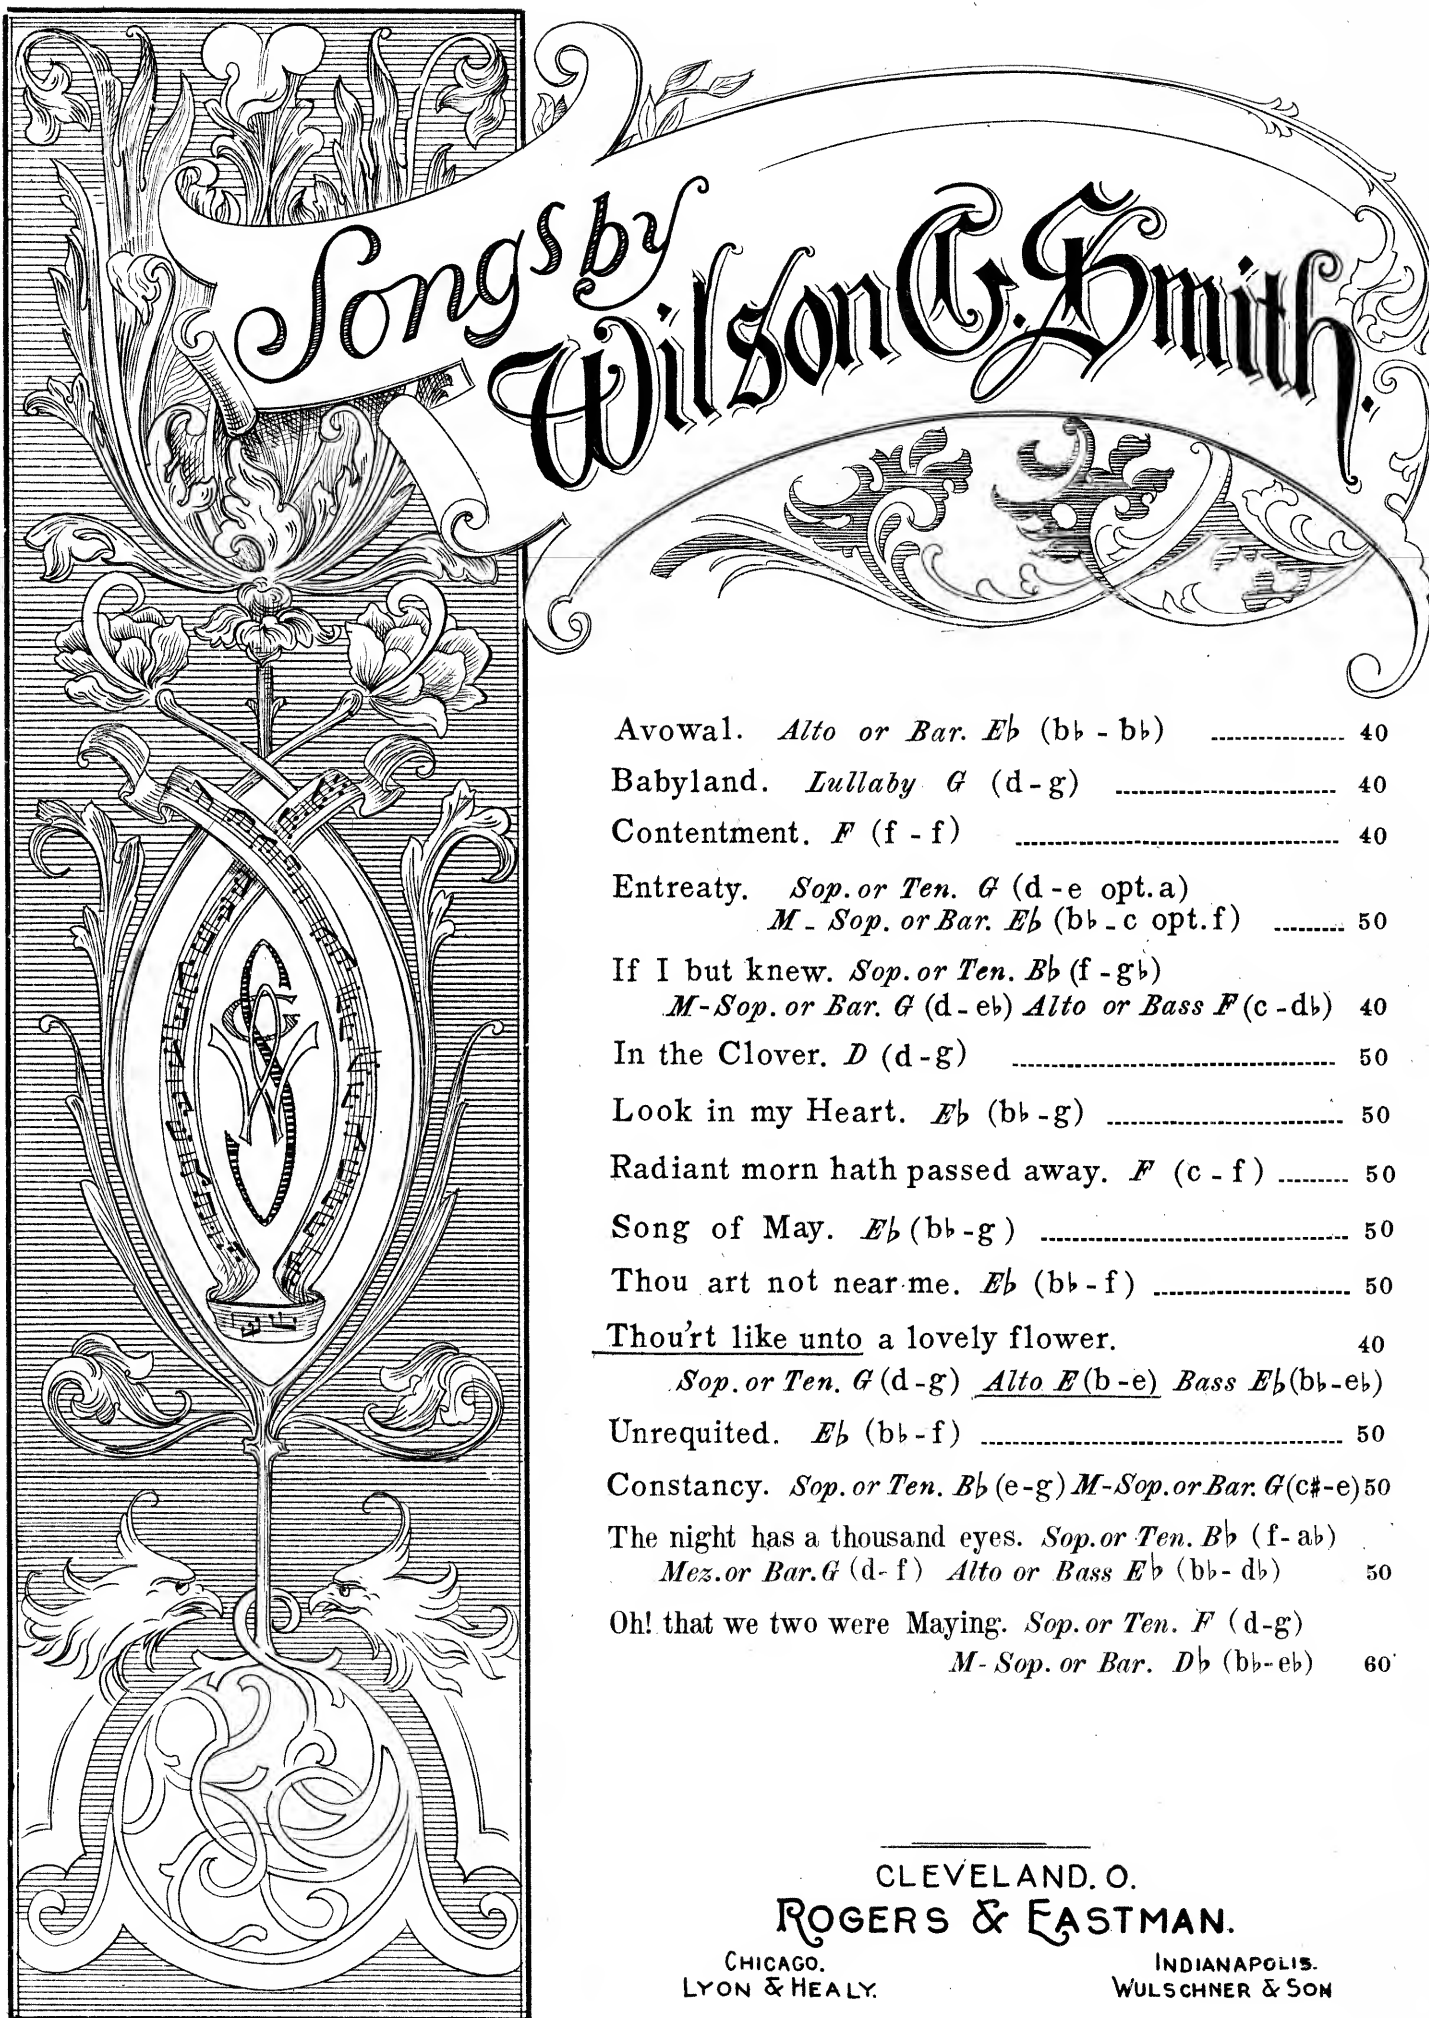 Songs by
Wilson G. Smith.
Avowal. Alto or Bar. E♭ (b♭ - b♭) 40
Babyland. Lullaby G (d - g) 40
Contentment. F (f - f) 40
Entreaty. Sop. or Ten. G (d - e opt. a)
M - Sop. or Bar. E♭ (b♭ - c opt. f) 50
If I but knew. Sop. or Ten. B♭ (f - g♭)
M-Sop. or Bar. G (d - e♭) Alto or Bass F (c - d♭) 40
In the Clover. D (d - g) 50
Look in my Heart. E♭ (b♭ - g) 50
Radiant morn hath passed away. F (c - f) 50
Song of May. E♭ (b♭ - g) 50
Thou art not near me. E♭ (b♭ - f) 50
Thou'rt like unto a lovely flower. 40
Sop. or Ten. G (d - g) Alto E (b - e) Bass E♭ (b♭ - e♭)
Unrequited. E♭ (b♭ - f) 50
Constancy. Sop. or Ten. B♭ (e - g) M-Sop. or Bar. G (c♯ - e) 50
The night has a thousand eyes. Sop. or Ten. B♭ (f - a♭)
Mez. or Bar. G (d - f) Alto or Bass E♭ (b♭ - d♭) 50
Oh! that we two were Maying. Sop. or Ten. F (d - g)
M - Sop. or Bar. D♭ (b♭ - e♭) 60
CLEVELAND. O.
ROGERS & EASTMAN.
CHICAGO. INDIANAPOLIS.
LYON & HEALY. WULSCHNER & SON